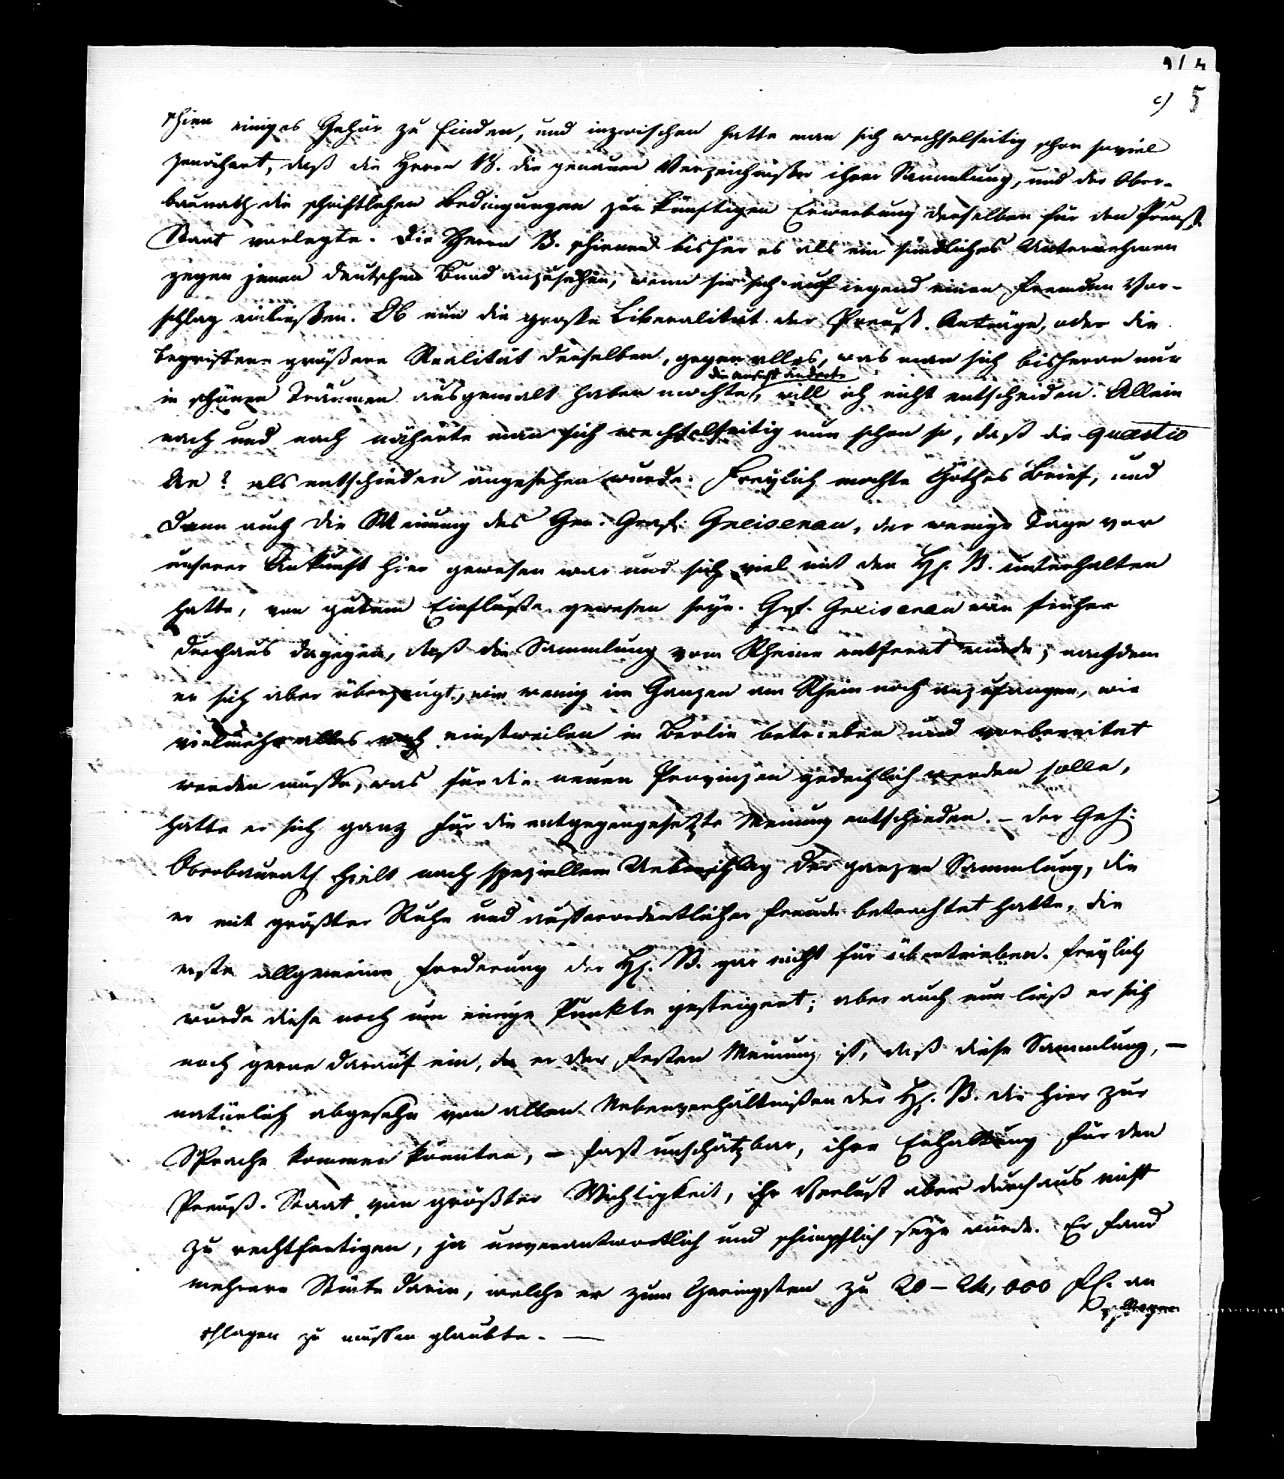 c) 5
schien einiges Gehör zu finden, und inzwischen hatte man sich wechselseitig schon soviel
genähert, daß die Herrn B. die genauen Verzeichniße ihrer Sammlung, und der Ober-
baurath die schriftlichen Bedingungen zur künftigen Erwerbung derselben für den Preuß.
Staat vorlegte. Die Herrn B. schienen bisher es als ein sündliches Unternehmen
gegen jenen deutschen Bund anzusehen, wenn sie sich auf irgend einen fremden Vor-
schlag einließen. Ob nun die große Liberalität der Preuß. Anträge, oder die
begriffene größere Realität derselben, gegen alles, was man sich bisheran nur
die Ansicht änderte
in schönen Träumen ausgemalt haben mochte, will ich nicht entscheiden. Allein
nach und nach näherte man sich wechselseitig nun schon so, daß die quaestio
an? als entschieden angesehen wurde. Freylich mochte Göthes Brief, und
dann auch die Meinung des Gen. Graf. Gneisenau, der wenige Tage vor
unserer Ankunft hier gewesen war und sich viel mit den H. B. unterhalten
hatte, von gutem Einfluße gewesen seyn. Grf. Gneisenau war früher
durchaus dagegen, daß die Sammlung vom Rheine entfernt würde; nachdem
er sich aber überzeugt, wie wenig im Ganzen am Rhein noch anzufangen, wie
vielmehr alles noch einstweilen in Berlin betrieben und vorbereitet
werden müße, was für die neuen Provinzen gedeihlich werden solle,
hatte er sich ganz für die entgegengesetzte Meinung entschieden. – Der Geh:
Oberbaurath hielt nach speziellem Ueberschlag der ganzen Sammlung, die
er mit größter Ruhe und außerordentlicher Freude betrachtet hatte, die
erste allgemeine Forderung der H. B. gar nicht für übertrieben. Freylich
wurde diese noch um einige Punkte gesteigert; aber auch nun ließ er sich
noch gerne darauf ein, da er der festen Meinung ist, daß diese Sammlung, –
natürlich abgesehn von allen Nebenverhältnißen der H. B. die hier zur
Sprache kommen könnten, – fast unschätzbar, ihre Erhaltung für den
Preuß. Staat von größter Wichtigkeit, ihr Verlust aber durchaus nicht
zu rechtfertigen, ja unverantwortlich und schimpflich seyn würde. Er fand
mehrere Stücke darin, welche er zum Geringsten zu 20 – 24,000 fl. an
schlagen zu müssen glaubte. –